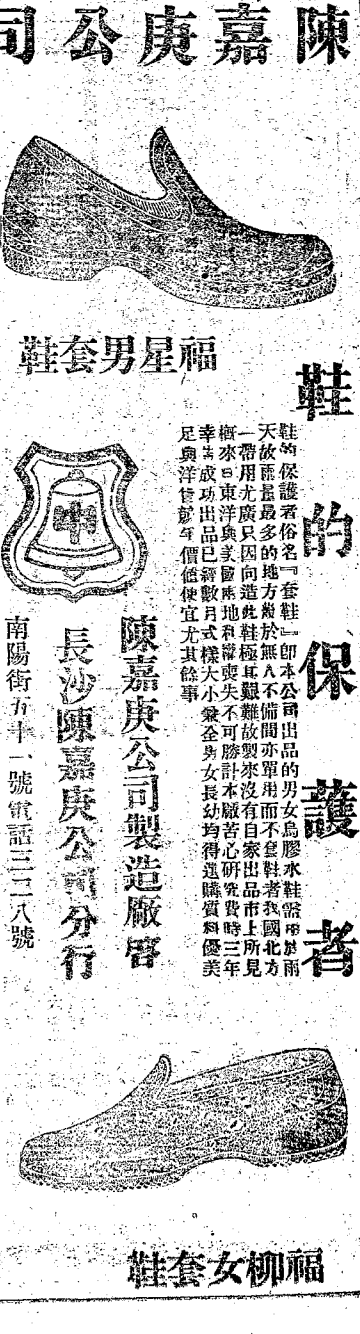 陳嘉庚公司
福星男套鞋
鞋的保護者
鞋的保護者俗名『套鞋』即本公司出品的男女烏膠水鞋需用於雨
天故雨量最多的地方幾於無人不備間亦單用而不套鞋者我國北方
一帶用尤廣只因向造此鞋極其艱難故製來沒有自家出品市上所見
概來自東洋與美國兩地利權喪失不可勝計本廠苦心研究費時三年
幸告成功出品已經數月式樣大小兼全男女長幼均得選購質料優美
足與洋貨競爭價值便宜尤其餘事
中
陳嘉庚公司製造廠啓
長沙陳嘉庚公司分行
南陽街五十一號電話三三八號
福柳女套鞋